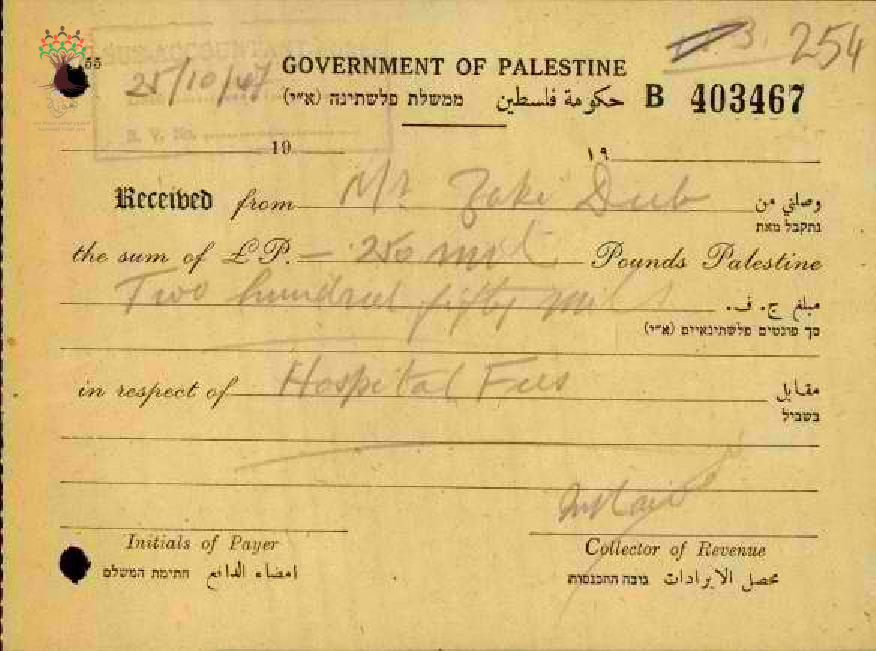 254
55
SUB-ACCOUNTANT
25/10/47
GOVERNMENT OF PALESTINE
ממשלת פלשתינה (א״י) حكومة فلسطين B 403467
R. V. No.
19 ١٩
Received from Mr Zaki Dub وصلني من
נתקבל מאת
the sum of £P. — .250 mils Pounds Palestine
Two hundred fifty mils مبلغ ج. ف.
סך פונטים פלשתינאיים (א״י)
in respect of Hospital Fees مقابل
בשביל
Initials of Payer Collector of Revenue
חתימת המשלם امضاء الدافع גובה ההכנסות محصل الايرادات